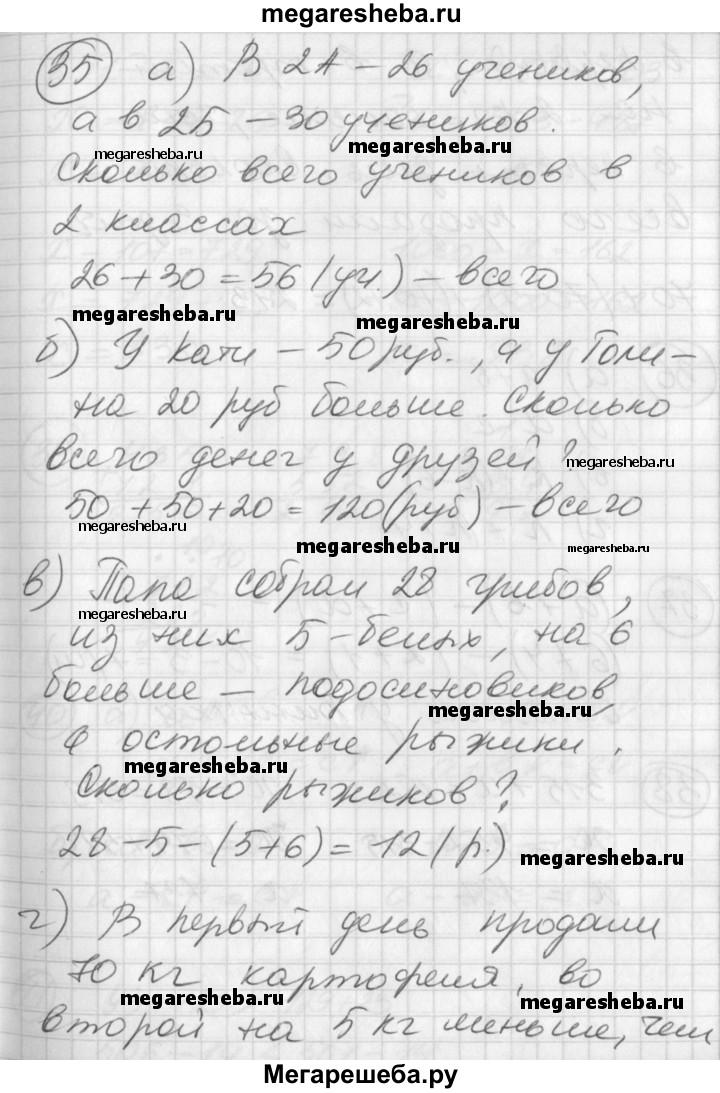 megaresheba.ru
35 а) В 2А – 26 учеников,
а в 2Б – 30 учеников.
megaresheba.ru
megaresheba.ru
Сколько всего учеников в
2 классах
26 + 30 = 56 (уч.) – всего
megaresheba.ru
megaresheba.ru
б) У Кати – 50 руб., а у Толи –
на 20 руб больше. Сколько
всего денег у друзей?
megaresheba.ru
50 + 50 + 20 = 120 (руб) – всего
megaresheba.ru
megaresheba.ru
megaresheba.ru
в) Папа собрал 28 грибов,
megaresheba.ru
из них 5 – белых, на 6
больше – подосиновиков,
megaresheba.ru
а остальные рыжики.
megaresheba.ru
Сколько рыжиков?
28 – 5 – (5+6) = 12 (р.)
megaresheba.ru
г) В первый день продали
70 кг картофеля, во
megaresheba.ru
megaresheba.ru
второй на 5 кг меньше, чем
Мегарешеба.ру